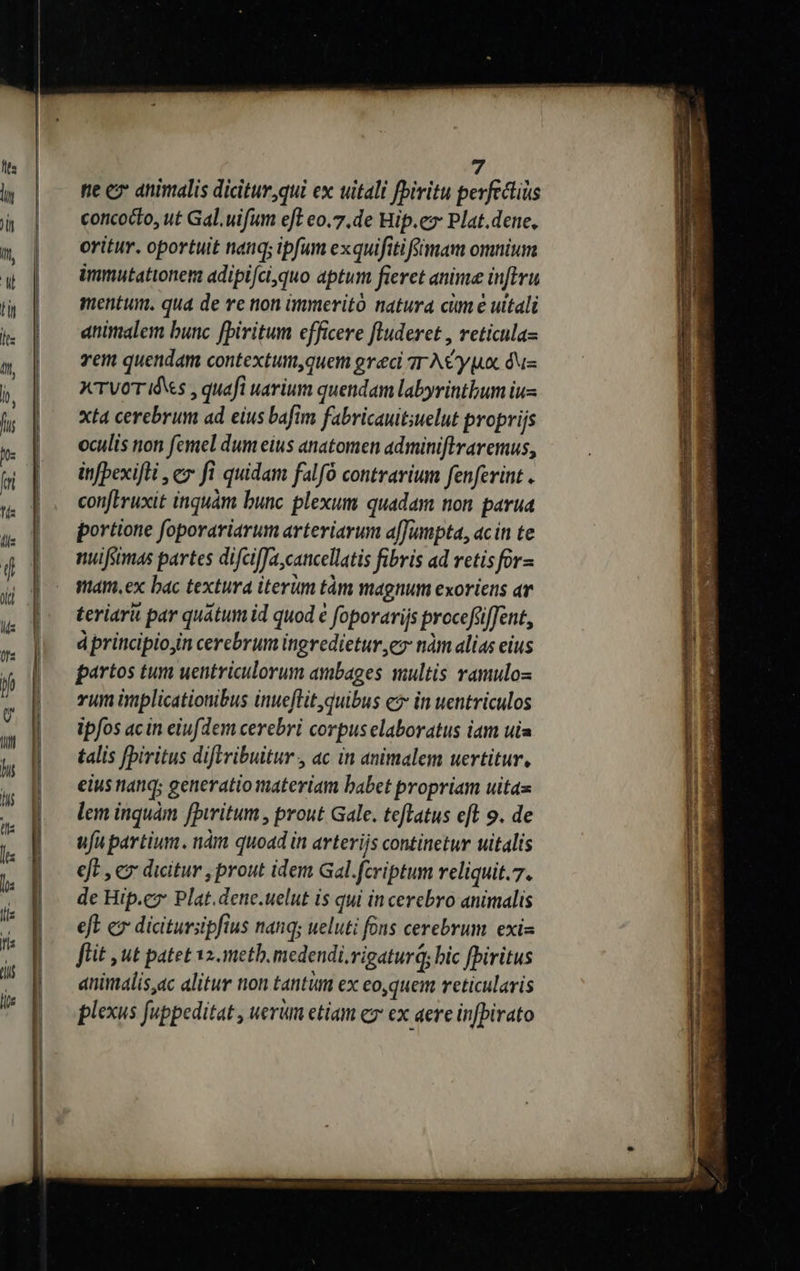 7
ne & animalis dicitur,qui ex uitali ſpiritu perfectiùs
concocto, ut Gal.uiſum eſt eo.7.de Hip.& Plat.dene,
oritur. oportuit nanq; ipſum exquiſitiſsimam omnium
immutationem adipiſci,quo aptum fieret animæ inſtru
mentum. qua de re non immeritò natura cùm è uitali
animalem hunc ſpiritum efficere ſtuderet , reticula=
rem quendam contextum,quem græci πλέγμα δι=
κτυοτιδες , quaſi uarium quendam labyrinthum iu=
xta cerebrum ad eius baſim fabricauit;uelut proprijs
oculis non ſemel dum eius anatomen adminiſtraremus,
inſpexiſti , & ſi quidam falſò contrarium ſenſerint .
conſtruxit inquàm hunc plexum quadam non parua
portione ſoporariarum arteriarum aſſumpta, ac in te
nuiſsimas partes diſciſſa,cancellatis fibris ad retis for=
mam.ex hac textura iterùm tàm magnum exoriens ar
teriarũ par quãtum id quod è ſoporarijs proceſsiſſent,
à principio,in cerebrum ingredietur,& nàm alias eius
partos tum uentriculorum ambages multis ramulo=
rum implicationibus inueſtit,quibus & in uentriculos
ipſos ac in eiuſdem cerebri corpus elaboratus iam ui=
talis ſpiritus diſtribuitur , ac in animalem uertitur.
eius nanq; generatio materiam habet propriam uita=
lem inquàm ſpiritum , prout Gale. teſtatus eſt 9. de
uſu partium. nàm quoad in arterijs continetur uitalis
eſt , & dicitur , prout idem Gal.ſcriptum reliquit.7.
de Hip.& Plat.dene.uelut is qui in cerebro animalis
eſt & dicitur;ipſius nanq; ueluti fons cerebrum exi=
ſtit , ut patet 12.meth.medendi.rigaturq́; hic ſpiritus
animalis,ac alitur non tantùm ex eo,quem reticularis
plexus ſuppeditat , uerùm etiam & ex aere inſpirato